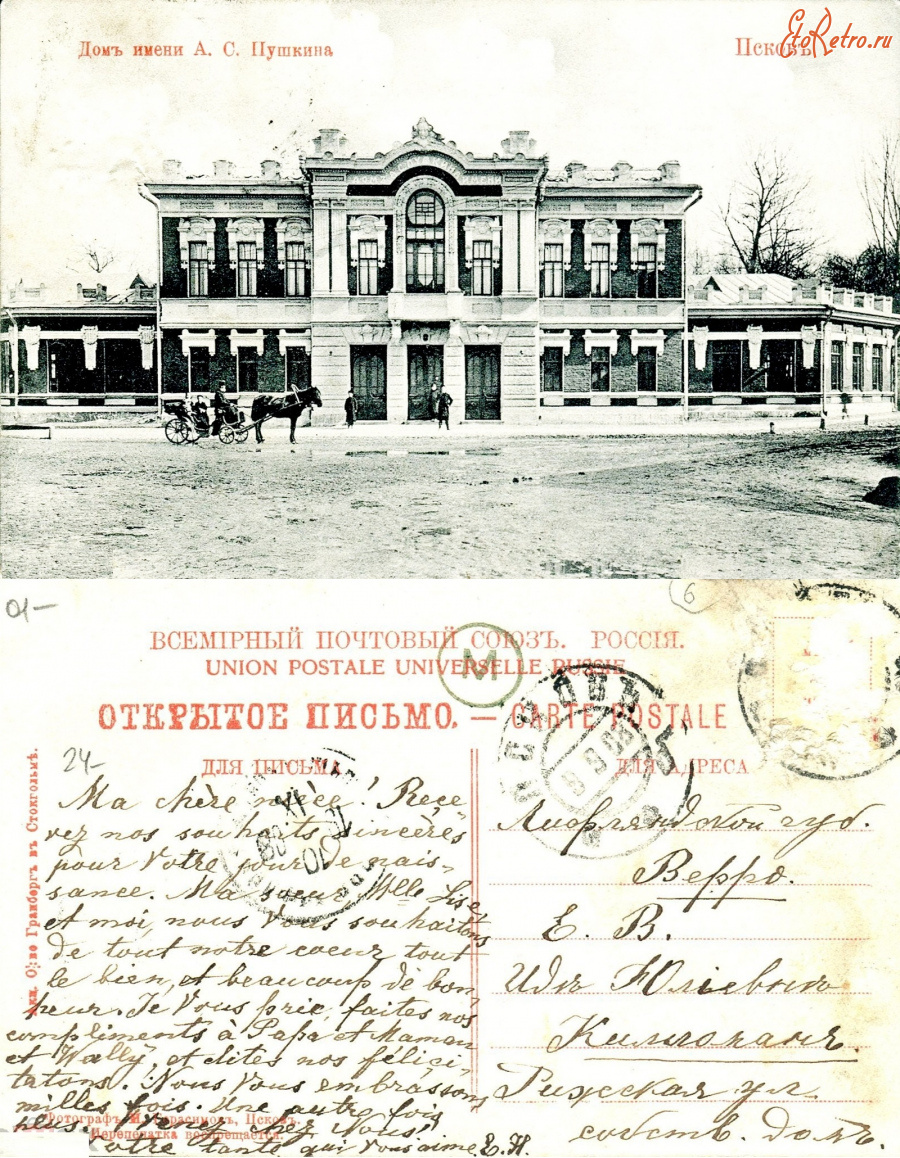 Домъ имени А. С. Пушкина
Псковъ
EtoRetro.ru
01-
6
ВСЕМІРНЫЙ ПОЧТОВЫЙ СОЮЗЪ. РОССІЯ.
UNION POSTALE UNIVERSELLE RUSSIE
М
ОТКРЫТОЕ ПИСЬМО. — CARTE POSTALE
ПСКОВЪ
24-
ДЛЯ ПИСЬМА
ДЛЯ АДРЕСА
Ma chère nièce! Reçe-
vez nos souhaits sincères
pour Votre jour de nais-
sance. Ma soeur Mlle Lise
et moi, nous Vous souhaitons
de tout notre coeur tout
le bien, et beaucoup de bon-
heur. Je Vous prie, faites nos
compliments à Papa et Maman
et Wally, et dites nos félici-
tations. Nous Vous embrassons
milles fois. Une autre fois
chez Nous!
Votre tante qui Vous aime. E. H.
Лифляндской губ.
Верро.
Е. В.
Идѣ Юліевнѣ
Рижская ул.
собств. домъ.
Акц. О-во Гранбергъ въ Стокгольмѣ.
Фотографъ М. Герасимовъ, Псковъ.
Перепечатка воспрещается.